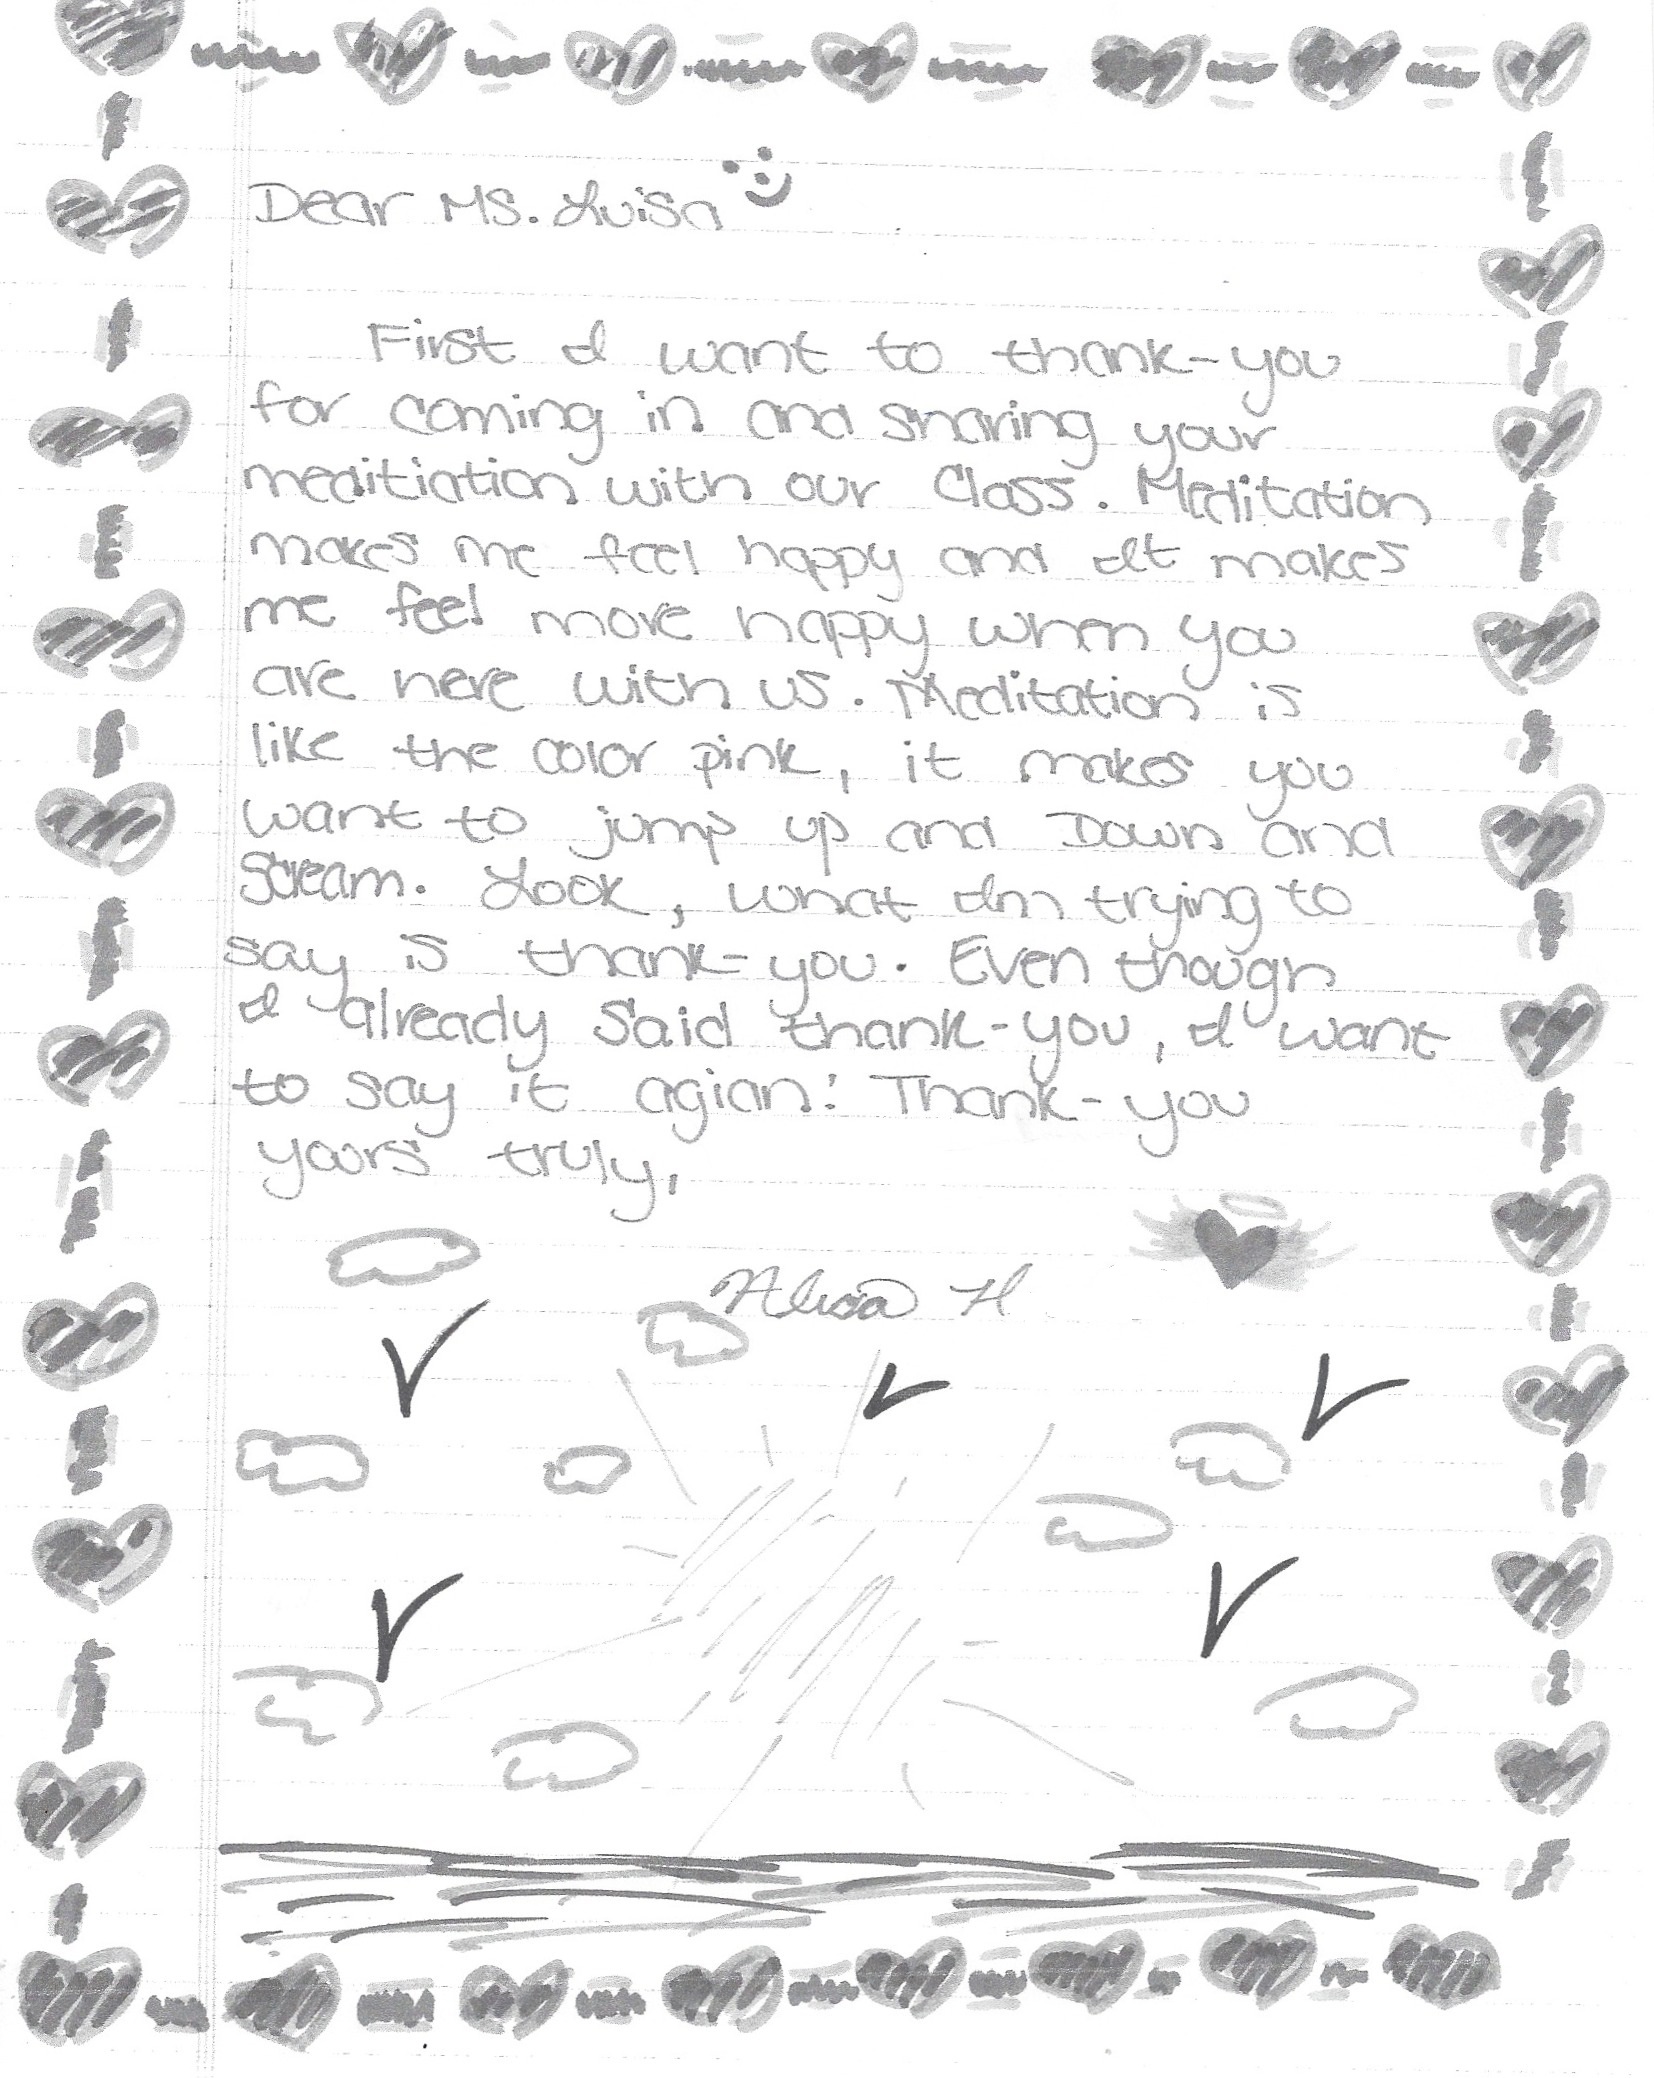 Dear MS. Luisa
First I want to thank-you
for coming in and sharing your
meditiation with our Class. Meditation
makes me feel happy and It makes
me feel more happy when you
are here with us. Meditation is
like the color pink, it makes you
want to jump up and Down and
Scream. Look, what Im trying to
say is thank-you. Even though
I already Said thank-you, I want
to say it agian! Thank-you
yours truly,
Alisa H